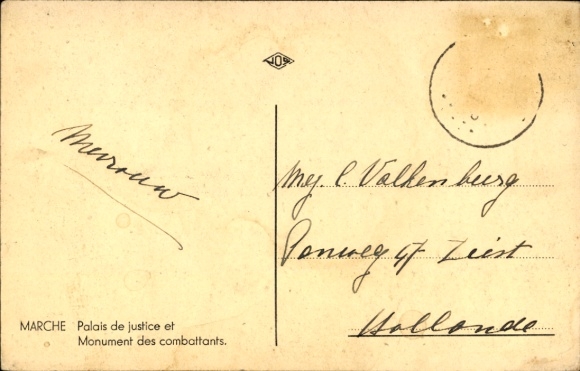 JOS
Mevrouw
Mej C. Valkenburg
Panweg 47 Zeist
Hollande
MARCHE Palais de justice et
Monument des combattants.